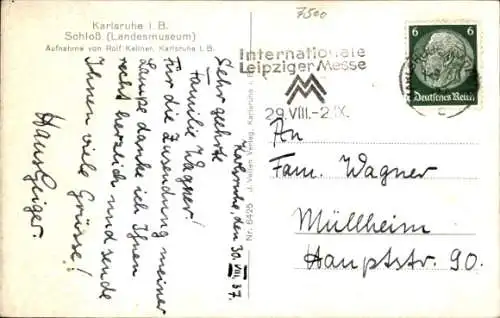 Karlsruhe i. B.
Schloß (Landesmuseum)
Aufnahme von Rolf Kellner, Karlsruhe i. B.
Karlsruhe, den 30. VIII. 37.
Sehr geehrte
Familie Wagner!
Für die Zusendung meiner
Lampe danke ich Ihnen
recht herzlich und sende
Ihnen viele Grüsse!
Hans Geiger.
Nr. 8495 J. Velten Verlag, Karlsruhe i.
7500
Internationale
Leipziger Messe
29.VIII.-2.IX.
6 6
Deutsches Reich
An
Fam. Wagner
Müllheim
Hauptstr. 90.